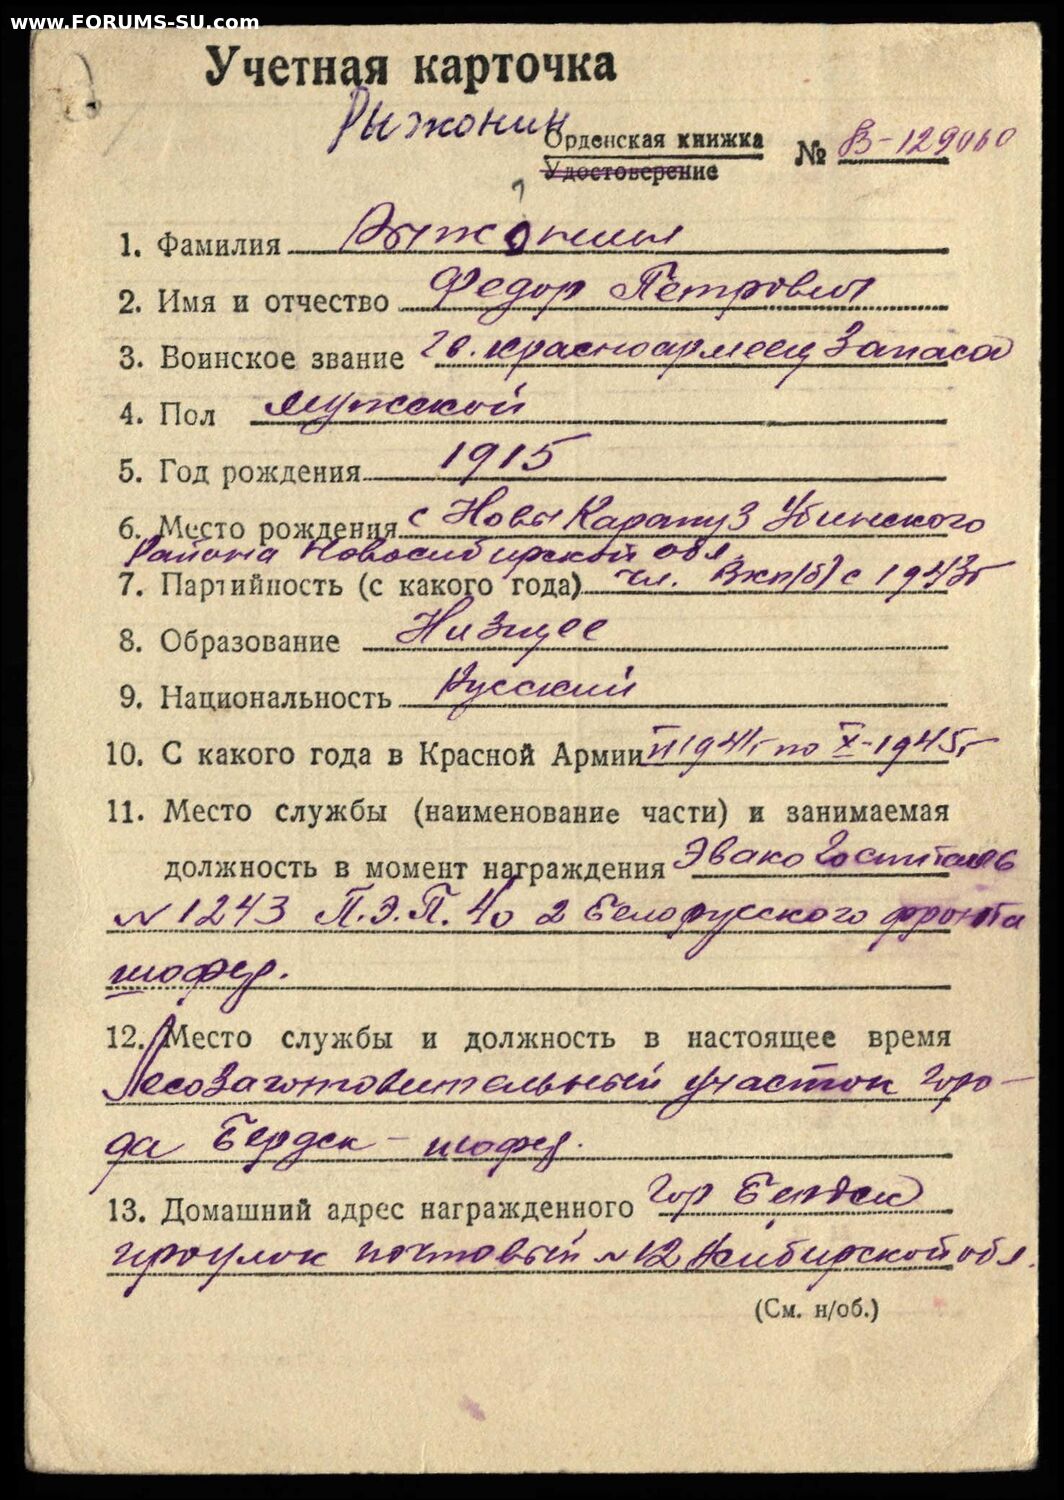 www.FORUMS-SU.com
Учетная карточка
Рыжонин
Орденская книжка
Удостоверение
№ В-129060
?
1. Фамилия Рыжонин
2. Имя и отчество Федор Петрович
3. Воинское звание Гв. красноармеец запаса
4. Пол мужской
5. Год рождения 1915
6. Место рождения с Новы Карапуз Убинского
района Новосибирской обл.
7. Партийность (с какого года) чл. ВКП(б) с 1943г
8. Образование Низшее
9. Национальность Русский
10. С какого года в Красной Армии 1941г по X-1945г
11. Место службы (наименование части) и занимаемая
должность в момент награждения Эвакогоспиталь
№ 1243 П.Э.П. 2 Белорусского фронта
шофер.
12. Место службы и должность в настоящее время
Лесозаготовительный участок горо-
да Бердск - шофер.
13. Домашний адрес награжденного гор Бердск
проулок почтовый № 12 Н.сибирской обл.
(См. н/об.)